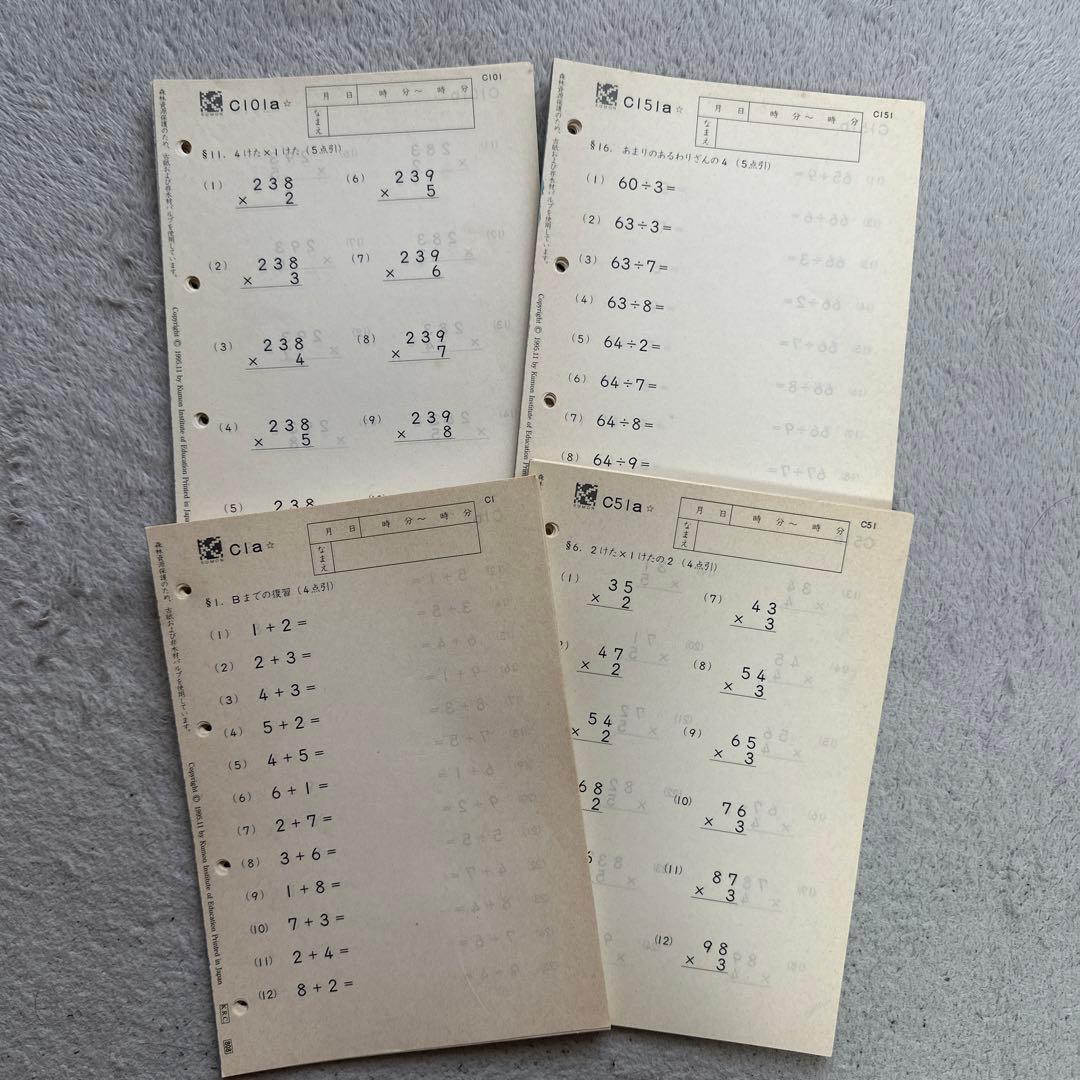 C101
KUMON
C101a☆
月 日 時 分～ 時 分
なまえ
§11. 4けた×1けた (5点引)
(1) 238
× 2
(6) 239
× 5
(2) 238
× 3
(7) 239
× 6
(3) 238
× 4
(8) 239
× 7
(4) 238
× 5
(9) 239
× 8
(5) 238
森林資源保護のため、古紙および非木材パルプを使用しています。
Copyright © 1995.11 by Kumon Institute of Education Printed in Japan
C151
KUMON
C151a☆
月 日 時 分～ 時 分
なまえ
§16. あまりのあるわりざんの4 (5点引)
(1) 60÷3=
(2) 63÷3=
(3) 63÷7=
(4) 63÷8=
(5) 64÷2=
(6) 64÷7=
(7) 64÷8=
(8) 64÷9=
森林資源保護のため、古紙および非木材パルプを使用しています。
Copyright © 1995.11 by Kumon Institute of Education Printed
C1
KUMON
C1a☆
月 日 時 分～ 時 分
なまえ
§1. Bまでの復習 (4点引)
(1) 1+2=
(2) 2+3=
(3) 4+3=
(4) 5+2=
(5) 4+5=
(6) 6+1=
(7) 2+7=
(8) 3+6=
(9) 1+8=
(10) 7+3=
(11) 2+4=
(12) 8+2=
森林資源保護のため、古紙および非木材パルプを使用しています。
Copyright © 1995.11 by Kumon Institute of Education Printed in Japan
KRC
C51
KUMON
C51a☆
月 日 時 分～ 時 分
なまえ
§6. 2けた×1けたの2 (4点引)
(1) 35
× 2
(7) 43
× 3
47
× 2
(8) 54
× 3
54
× 2
(9) 65
× 3
68
2
(10) 76
× 3
(11) 87
× 3
(12) 98
× 3